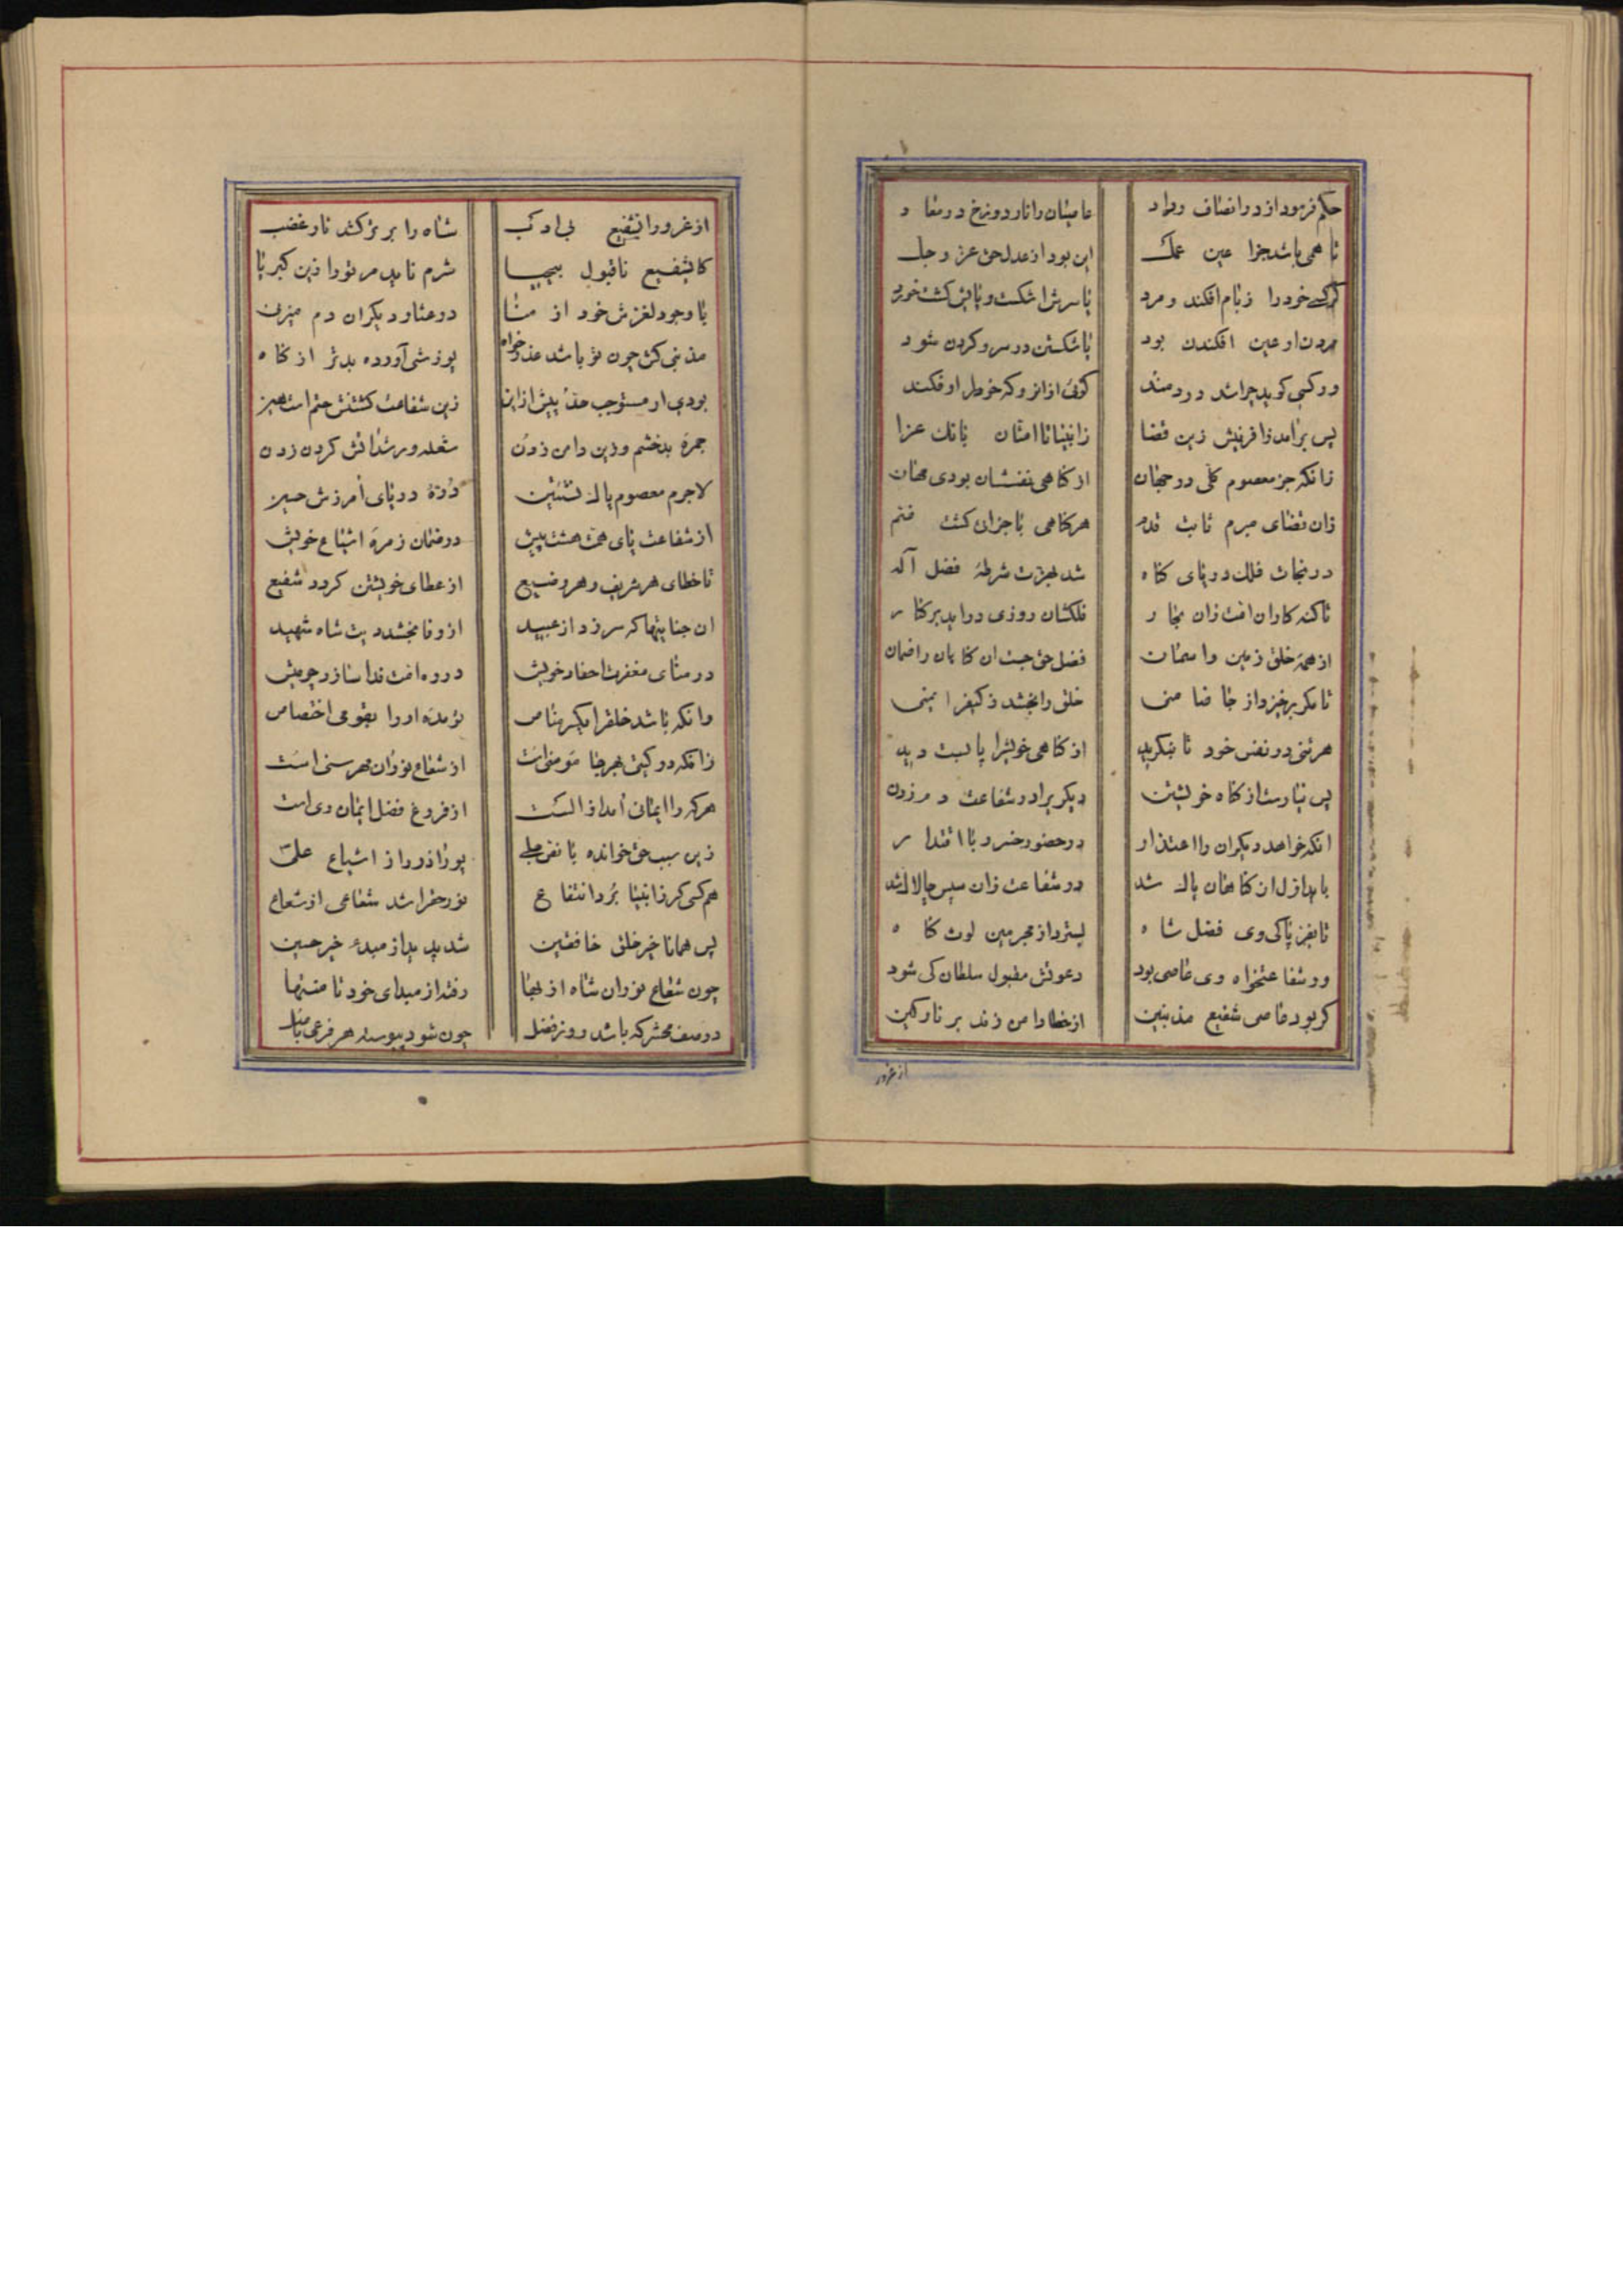 حکم فرمود از در انصاف و داد عاصیان را نار دوزخ در معاد
تا همی باشد جزا عین عمل این بود از عدل حق عز و جل
گر کسی خود را ز بام افکند و مرد یا سرش اشکست و پایش گشت خورد
مردن او عین افکندن بود یا شکستن در سر و گردن شود
ور کسی گوید چرا شد دردمند گوئی از انرو که خود را او فکند
پس برامد زافرینش زین قضا زانبیا تا امتان بانك عزا
زانکه جز معصوم کلی در جهان از گناهی نفسشان بودی مهان
زان قضای مبرم ثابت قدم هر گناهی با جزا گشت ضم
در نجات فلك دریای گناه شد بعزت شرطهٔ فضل آله
تا کنه کاران امت زان بحار فلکشان روزی دراید بر کنار
از همه خلق زمین و اسمان فضل حق جست ان گناهان را ضمان
تا مگر برخیزد از جا ضامنی خلق را بخشد ز کیفر ایمنی
هر تنی در نفس خود تا بنگرید از گناهی خویشرا پابست دید
پس نیارست از گناه خویشتن دیگریرا در شفاعت دم زدن
انکه خواهد دیگران را اعتذار در حضور خسرو با اقتدار
باید اول از گناهان پاك شد در شفاعت زان سپس چالاك شد
تا بفر پاکی وی فضل شاه بسترد از مجرمین لوث گناه
ور شفاعتخواه وی عاصی بود دعوتش مقبول سلطان کی شود
گر بود عاصی شفیع مذنبین از خطا دامن زند بر نار کین
از غرور
از غرور انشفیع بی ادب شاه را برتر کشد نار غضب
کایشفیع ناقبول بیحیا شرم ناید مر تو را زین کبریا
با وجود لغزش خود از منا در عثار دیگران دم میزن
مذنبی کش چون تو باشد عذر خواه پوزشی آورده بدتر از گناه
بودی ار مستوجب پیش ازین زین شفاعت کشتنش حتم است
جمره بد خشم و زین دامن زدن شعله ور شد اتش گردن زدن
لاجرم معصوم پاك در دریای آمرزش
از شفاعت پای همت هشت پیش در ضمان زمرهٔ اشیاع خویش
تا خطای هر شریف و هر وضیع از عطای خویشتن گردد شفیع
ان جنایتها که سر زد از عبید از وفا بخشد شاه شهید
در منای مغفرت احفاد خویش در ره امت فدا سازد چو میش
وانکه باشد خلقرا یکسر مناص او را بقومی اختصاص
زانکه در گیتی هر جا مومنی است از شعاع نور ان مهر سنی است
هر که را ایمانی آمد از الست از فروغ فضل ایمان وی است
زین سبب حق خوانده با نص جلی پور اذر را از اشیاع علی
هم کسی کز انبیا برد انتفاع نور حقرا شد شعاعی از شعاع
پس همانا خیر خلق خافقین شد پدید از مبدء خیر حسین
چون شعاع نور ان شاه از بها رفته از مبدای خود تا منتها
در صف محشر که باشد روز فضل چون شود پیوسته هر فرعی باصل